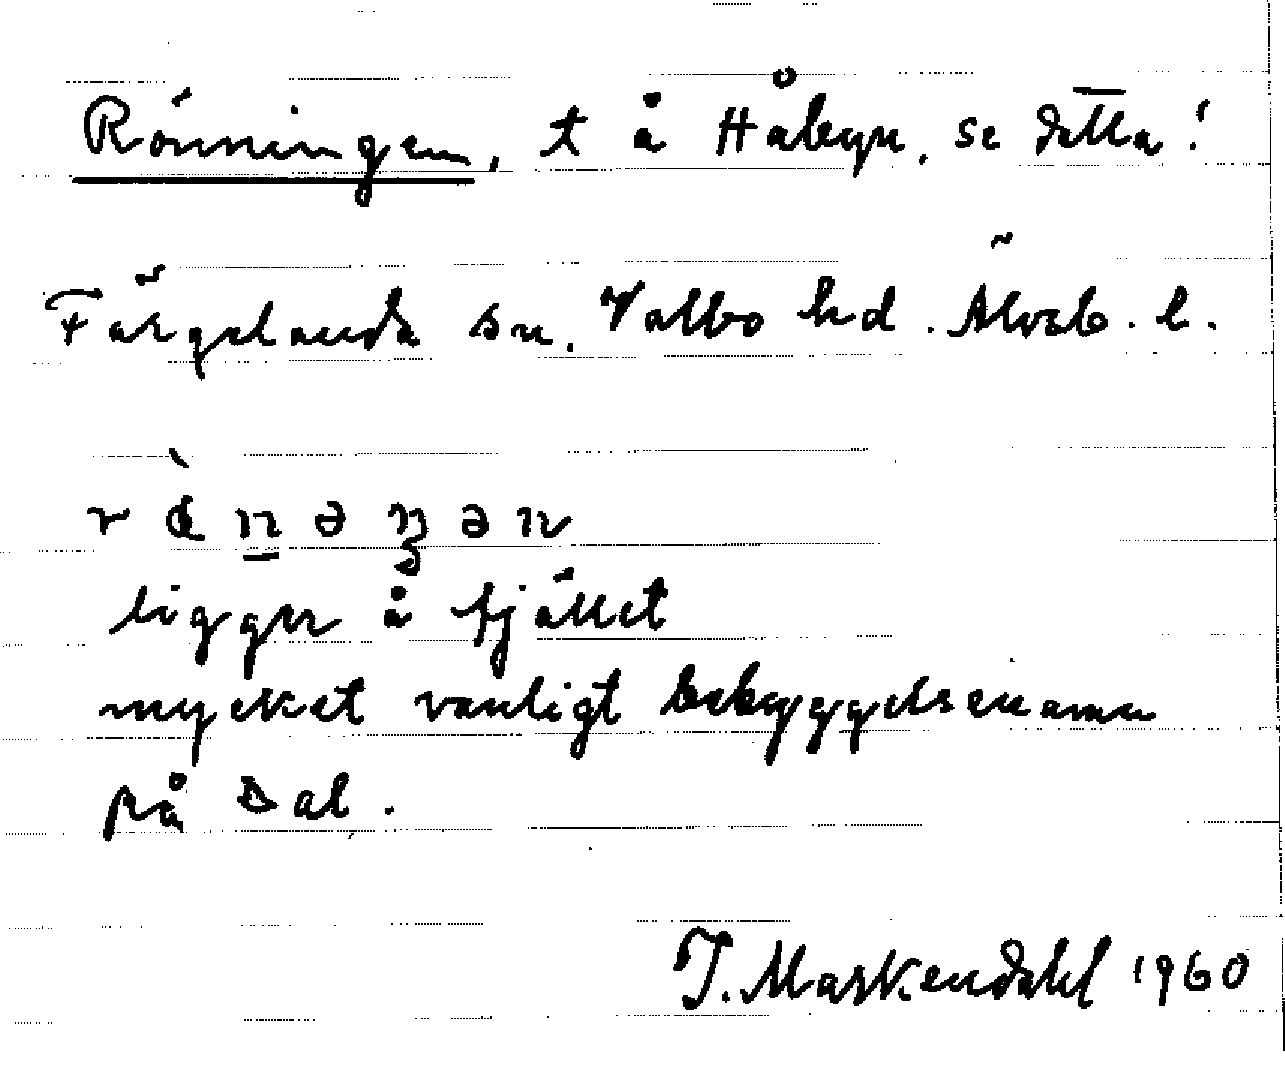 Rönningen, t å Håbyn, se detta!
Färgelanda sn. Valbo hd. Älvsb. l.
ligger å fjället
mycket vanligt bebyggelsenamn
på Dal.
J. Maskendahl 1960